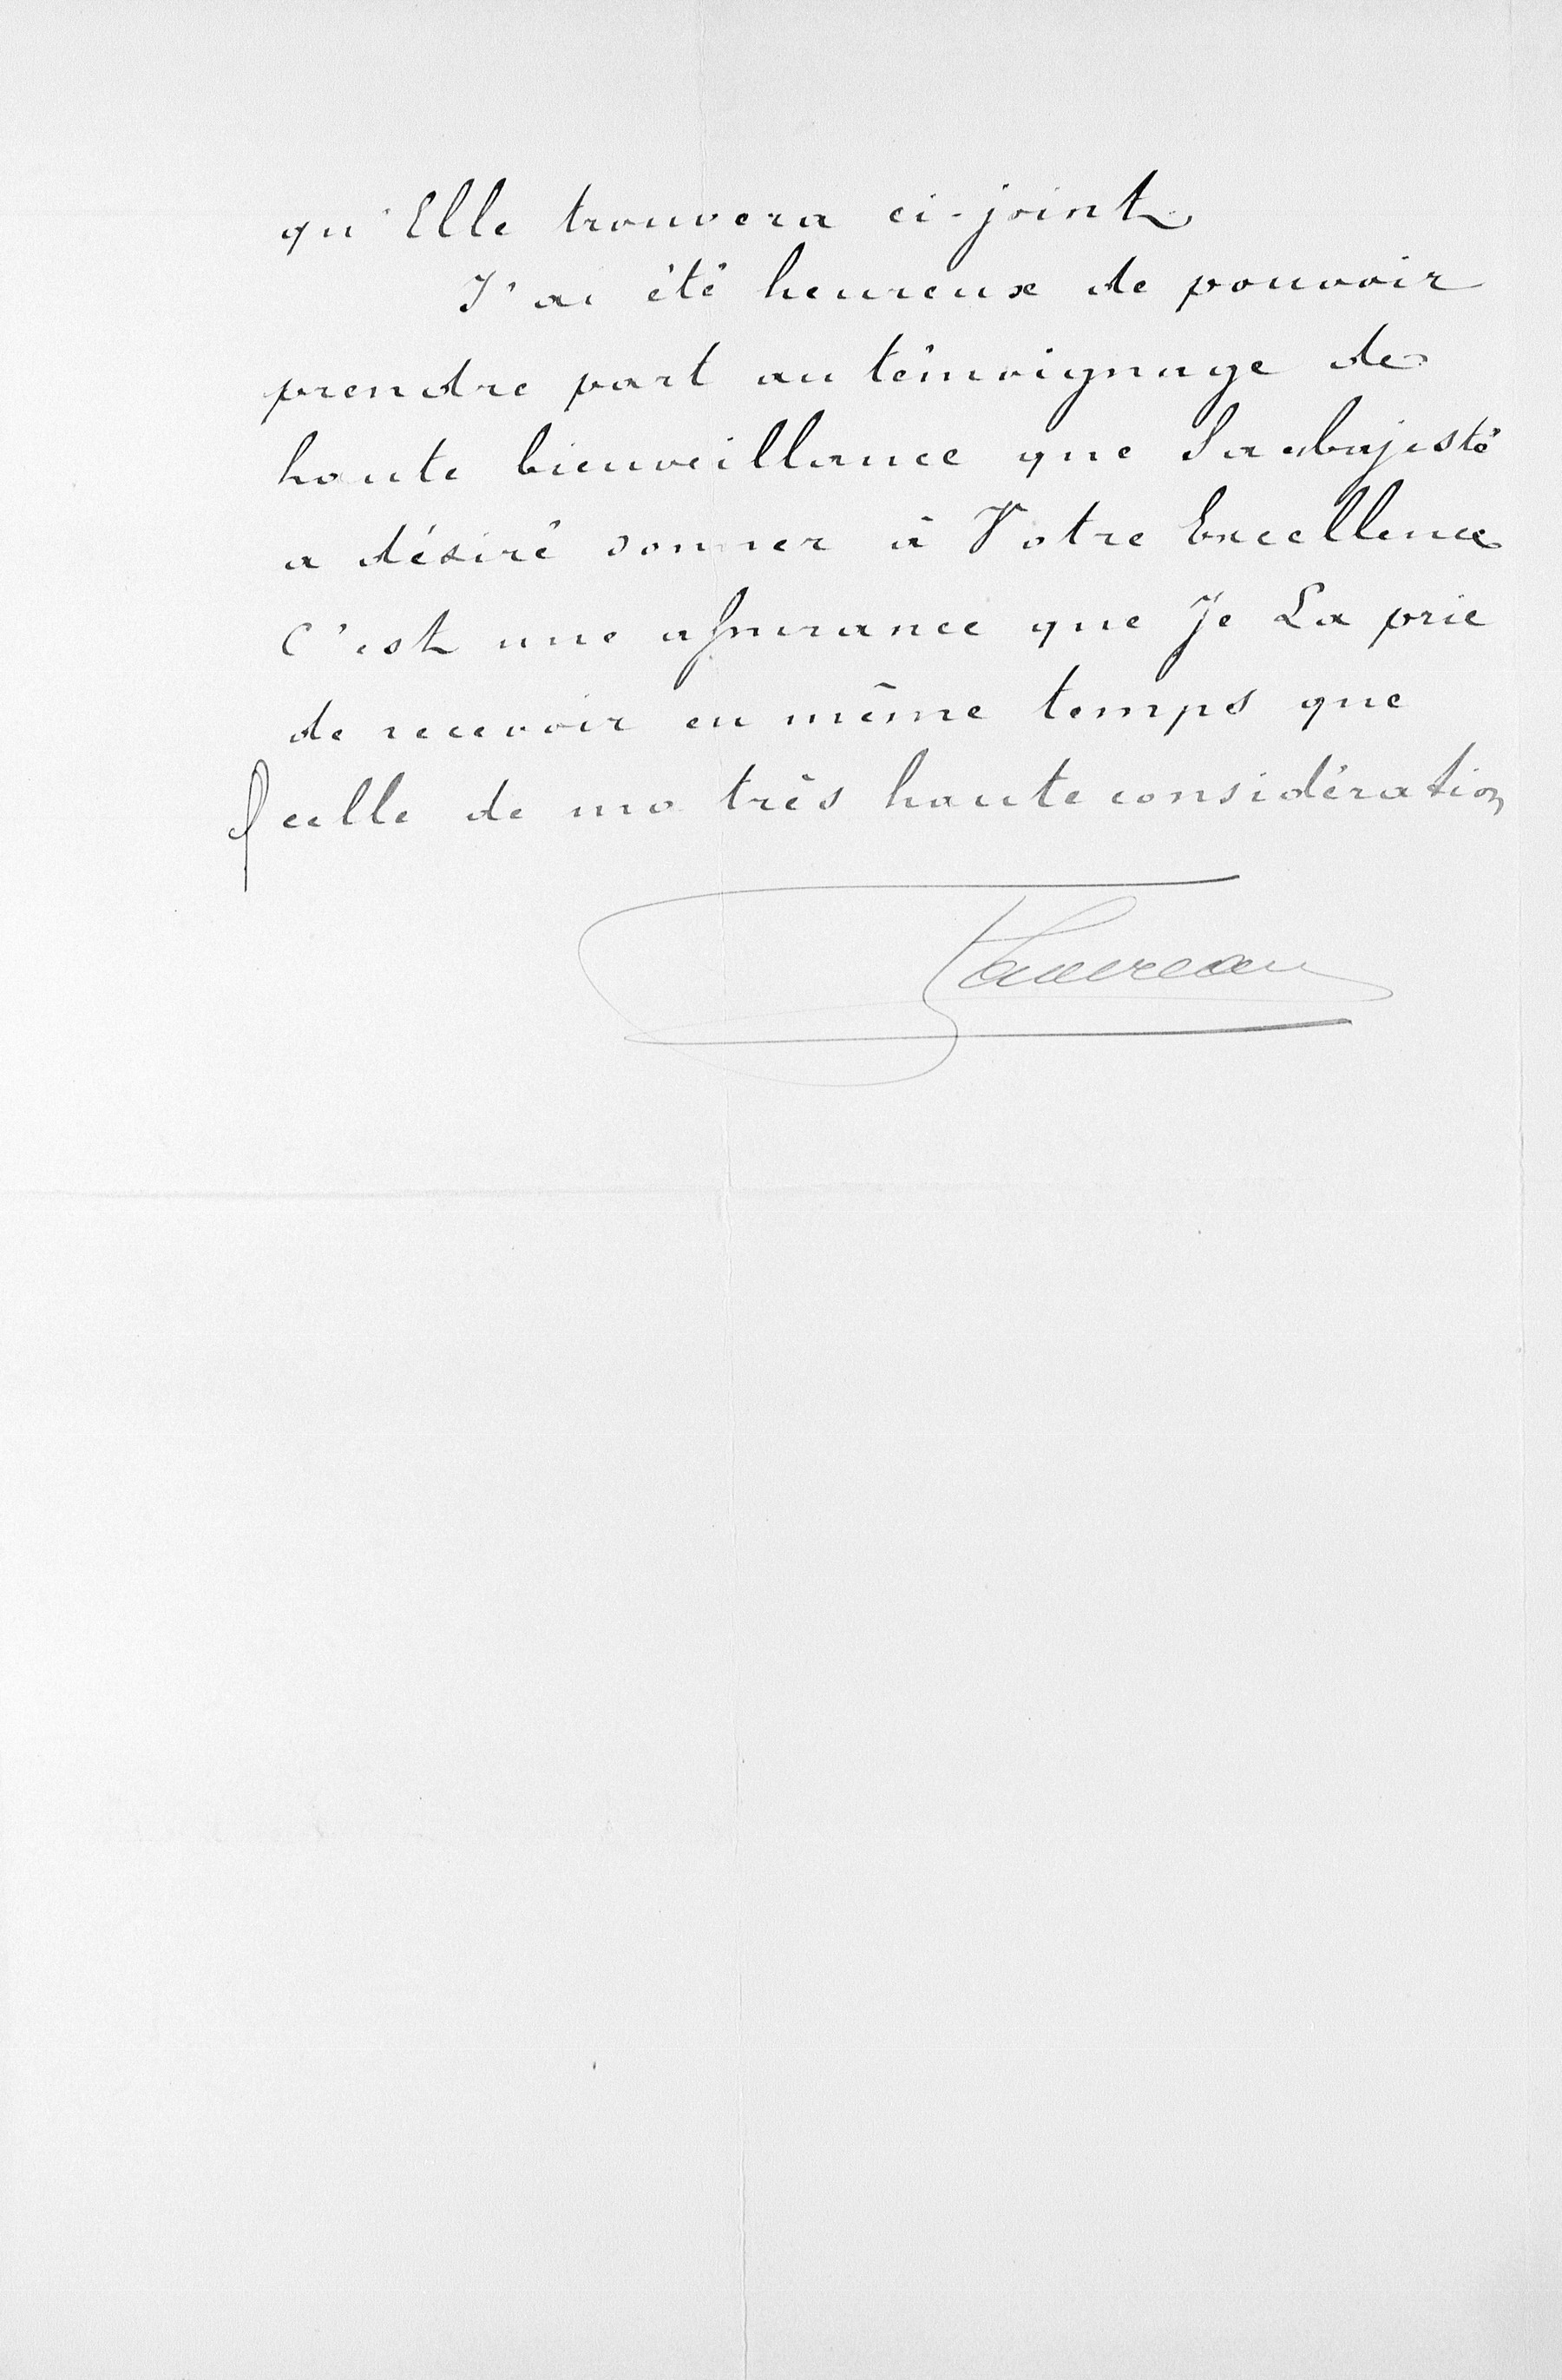 qu'Elle trouvera ci-joint
J'ai été heureux de pouvoir
prendre part au témoignage de
haute bienveillance que Sa Majesté
a désiré donner à Votre Excellence
C'est une assurance que Je La prie
de recevoir en même temps que
celle de ma très haute considération